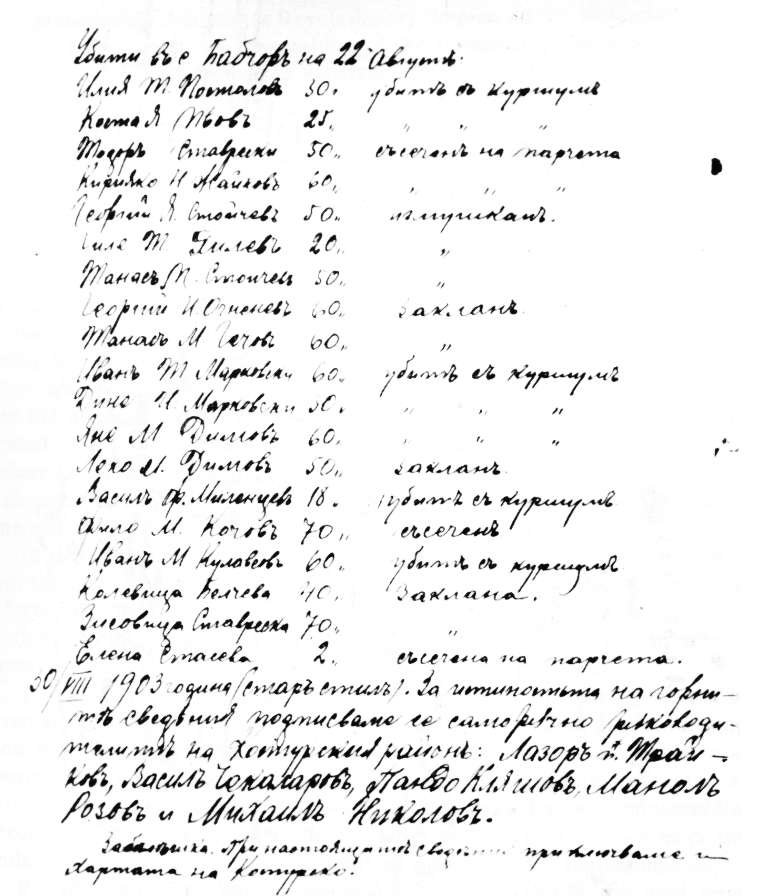 Убити въ с Бабчоръ на 22 Августъ.
Илия Т. Постоловъ 30„ убитъ съ куршумъ
Коста Я Пъовъ 25„ „ „ „
Тодоръ Ставрески 50„ съсеченъ на парчета
Кирияко Н Жайковъ 60„ „ „ „
Георгий Я. Стойчевъ 50„ измушканъ.
Гиле Т Гилевъ 20„ „
Танасъ П. Стоичевъ 50„ „
Георгий И Огненевъ 60„ закланъ
Танасъ М Гечовъ 60„ „
Иванъ Т Марковски 60„ убитъ съ куршумъ
Дине И. Марковски 50„ „ „ „
Яне М Димовъ 60„ „ „ „
Леко И. Димовъ 50„ закланъ
Василъ Ф. Миленцевъ 18„ убитъ съ куршумъ
М. Кочовъ 70„ съсеченъ
Иванъ М Кулавсовъ 60„ убитъ съ куршумъ
Колевица Белчева 40„ Заклана.
Зисовица Ставреска 70„ „
Елена Стасева 2„ съсечена на парчета.
30/VIII 1903 година (старъ стилъ). За истиностьта на горни-
тѣ сведѣния подписваме се саморѣчно рѫководи-
телитѣ на Костурския районъ: Лазоръ п. Трай-
ковъ, Василъ Чакаларовъ, Пандо Кляшовъ, Манолъ
Розовъ и Михаилъ Николовъ.
Забѣлѣшка. При настоящитѣ сведѣния приключваме и
хартата на Костурско.